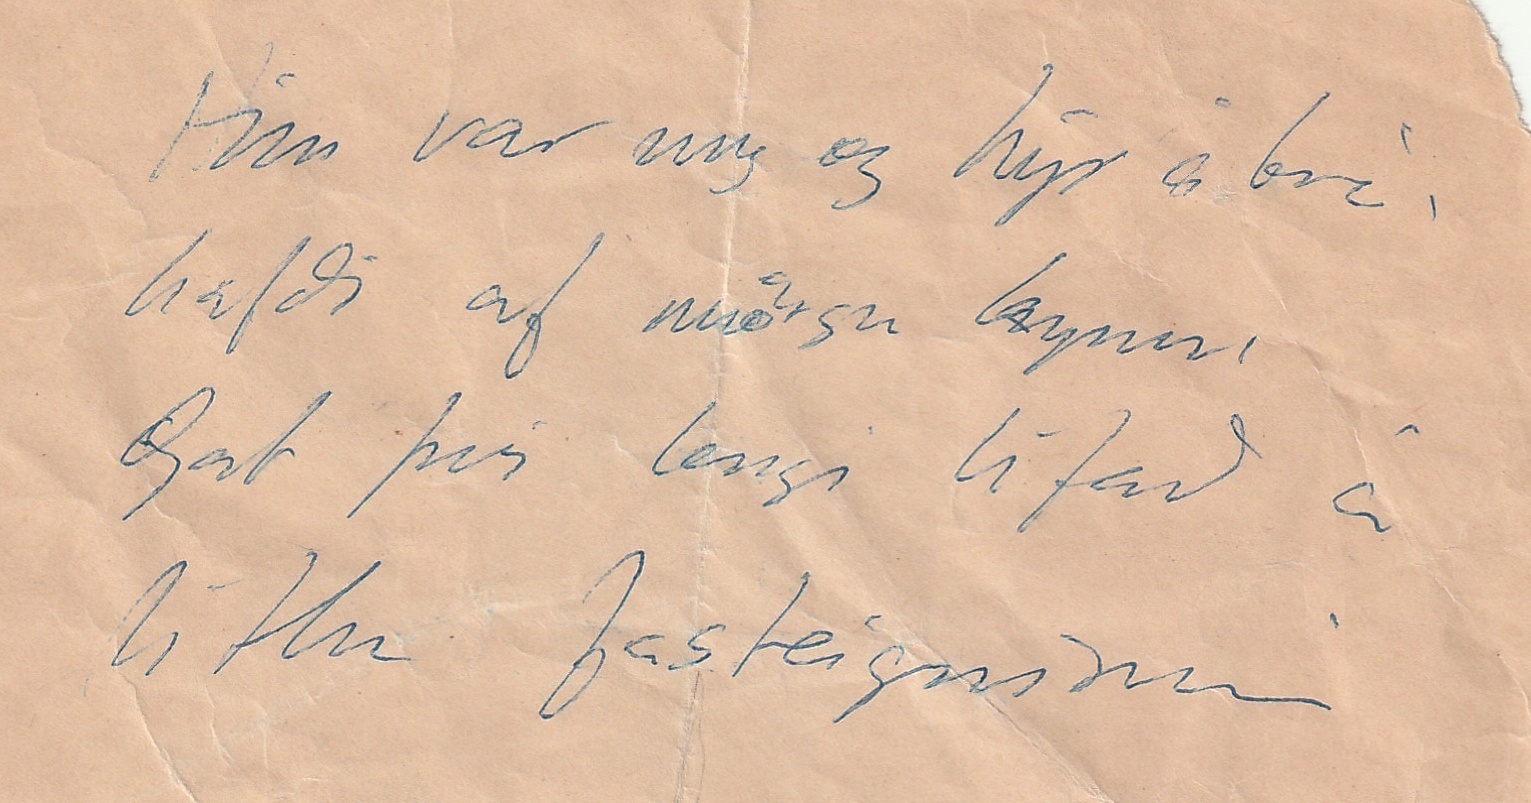 Hún var ung og hýr á brá,
hafði af mörgu kynni.
Gat því lengi lifað á
litlu fasteigninni